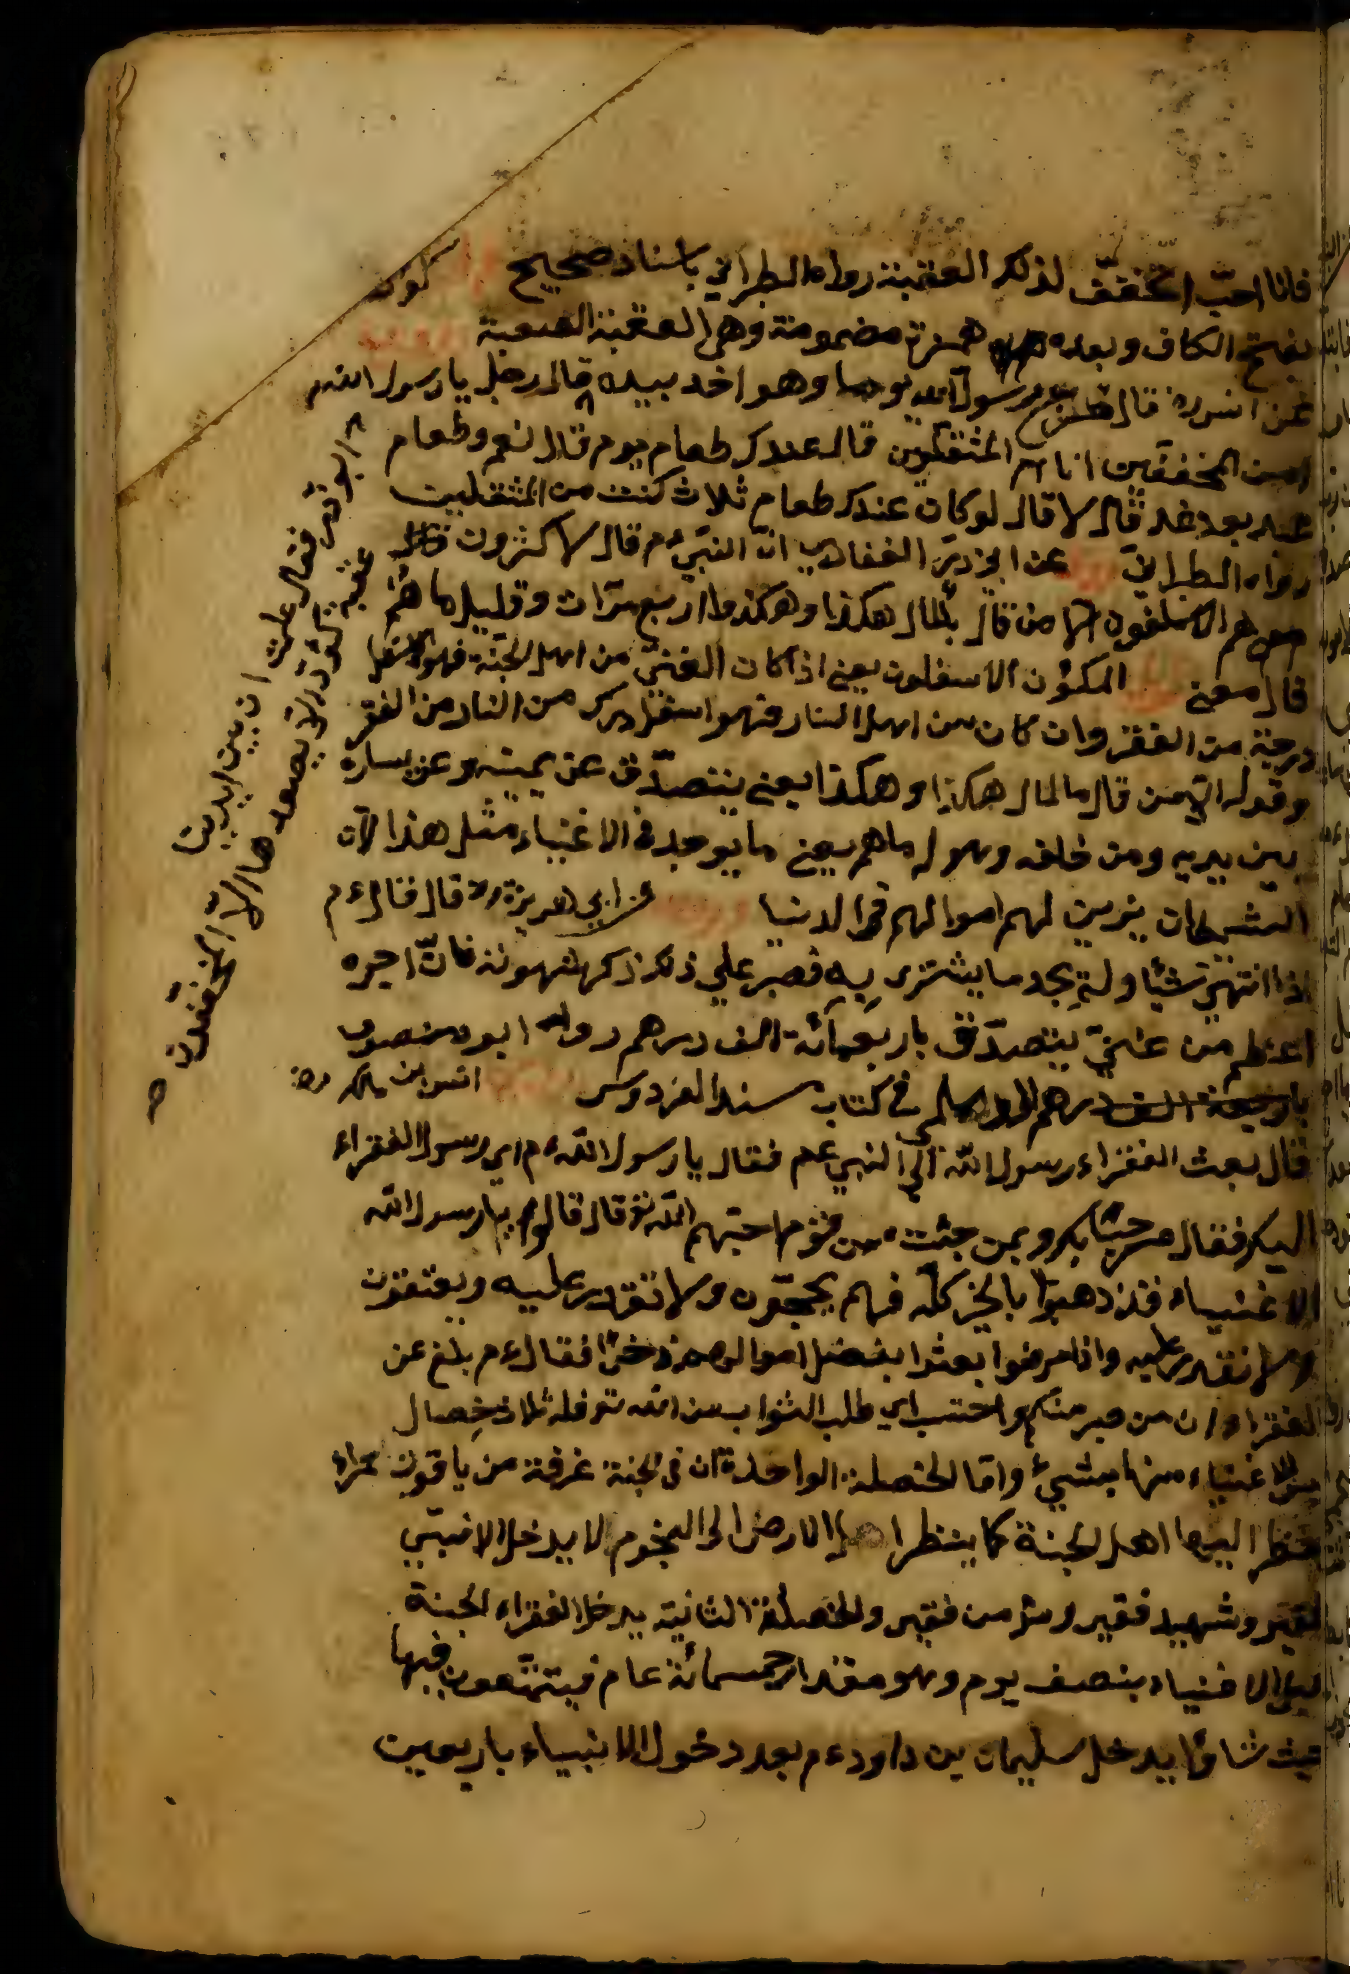 فانا احبّ اتخفّف لذلك العقبة رواه الطبراني باسناد صحيح كؤد
بفتح الكاف وبعده همزة مضمومة وهى العقبة الصعبة
عن انس رض قال خرج رسول الله يوما وهو اخذ بيد قال رجل يا رسول الله
امن المخففين انا ام المثقلين قال عندك طعام يوم قال نعم وطعام
غد وبعد غد قال لا قال لو كان عندك طعام ثلاث كنت من المثقلين
رواه الطبرانى عن ابى ذر الغفارى انّ النبىّ عم قال الاكثرون
هم الاسفلون الا من قال بالمال هكذا وهكذا اربع مرّات وقليل ما هم
قال معنى المكثرون الاسفلون يعنى اذا كان الغنىّ من اهل الجنّة فهو اسفل
درجة من الفقر وان كان من اهل النار فهو اسفل درك من النار من الفقر
وقوله الا من قال بالمال هكذا وهكذا يعنى يتصدّق عن يمينه وعن يساره
بين يديه ومن خلفه وقوله ماهم يعنى ما يوجد فى الاغنياء مثل هذا لانّ
الشيطان يزين لهم اموالهم فى الدنيا عن ابى هريرة رض قال قال عم
اذا اشتهى شيأ ولم يجد ما يشترى به فصبر على ذلك كان اجره
اعظم من غنىّ يتصدّق باربعمائة الف درهم رواه ابو منصور
الديلمى فى كتاب مسند الفردوس انس ابن مالك رض
قال بعث الفقراء رسول الله الى النبى عم فقال يا رسول الله انى رسول الفقراء
اليك فقال مرحبًا بك وبمن جئت من قوم احبّهم الله تع قال قالوا يا رسول الله
الاغنياء قد ذهبوا بالخير كلّه فهم يحجّون ولا نقدر عليه ويعتقون
ولا نقدر عليه واذا مرضوا بعثوا بفضل اموالهم ذخرًا فقال عم بلغ عن
الفقراء ان من صبر منكم واحتسب اى طلب الثواب من الله تع فله ثلاث خصال
ليس للاغنياء منها شىئ وامّا الخصلة الواحدة ان فى الجنة غرفة من ياقوت حمراء
ينظر اليها اهل الجنة كما ينظر اهل الارض الى النجوم لا يدخل الا نبىّ
فقير وشهيد فقير ومؤمن فقير والخصلة الثانية يدخل الفقراء الجنة
قبل الاغنياء بنصف يوم وهو مقدار خمسمائة عام فيتمتّعون فيها
حيث شاؤا يدخل سليمان بن داود عم بعد دخول الانبياء باربعين
ابو ذر فقال علمت ان بين ايدينا
عقبة كؤد لا يصعدها الا المخففون صح